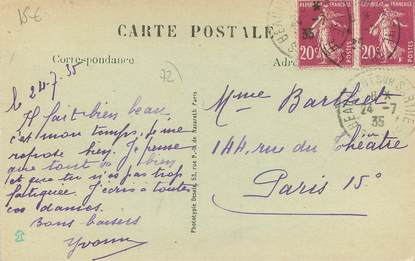 15€
CARTE POSTALE
Correspondance
Adr
20c POSTES
20c POSTES
le 24.7.35
72
Il fait bien beau,
c'est mon temps, je me
repose bien. Je pense
que tout va bien
et que tu n'es pas trop
fatiguée. J'écris à toutes
ces dames.
Bons baisers
Yvonne
Mme Barthet
144, rue du Théâtre
Paris 15e
24-7
35